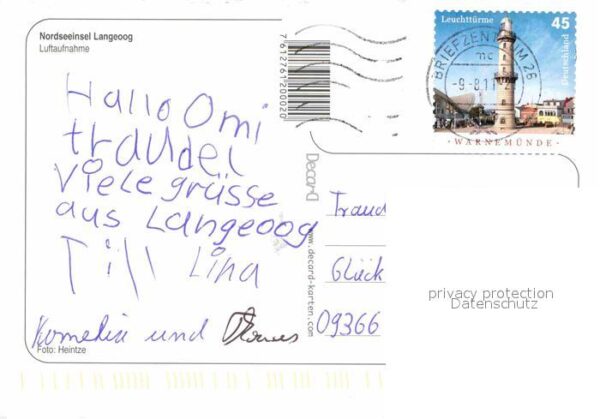 Nordseeinsel Langeoog
Luftaufnahme
Hallo Omi
traudel
Viele grüsse
aus Langeoog
Till Lina
und
Foto: Heintze
7612761200020
Decard
www.decard-karten.com
BRIEFZENTRUM 26
mc
-9-8.11-
Leuchttürme 45
Deutschland
WARNEMÜNDE
Traud
Glück
09366
privacy protection
Datenschutz